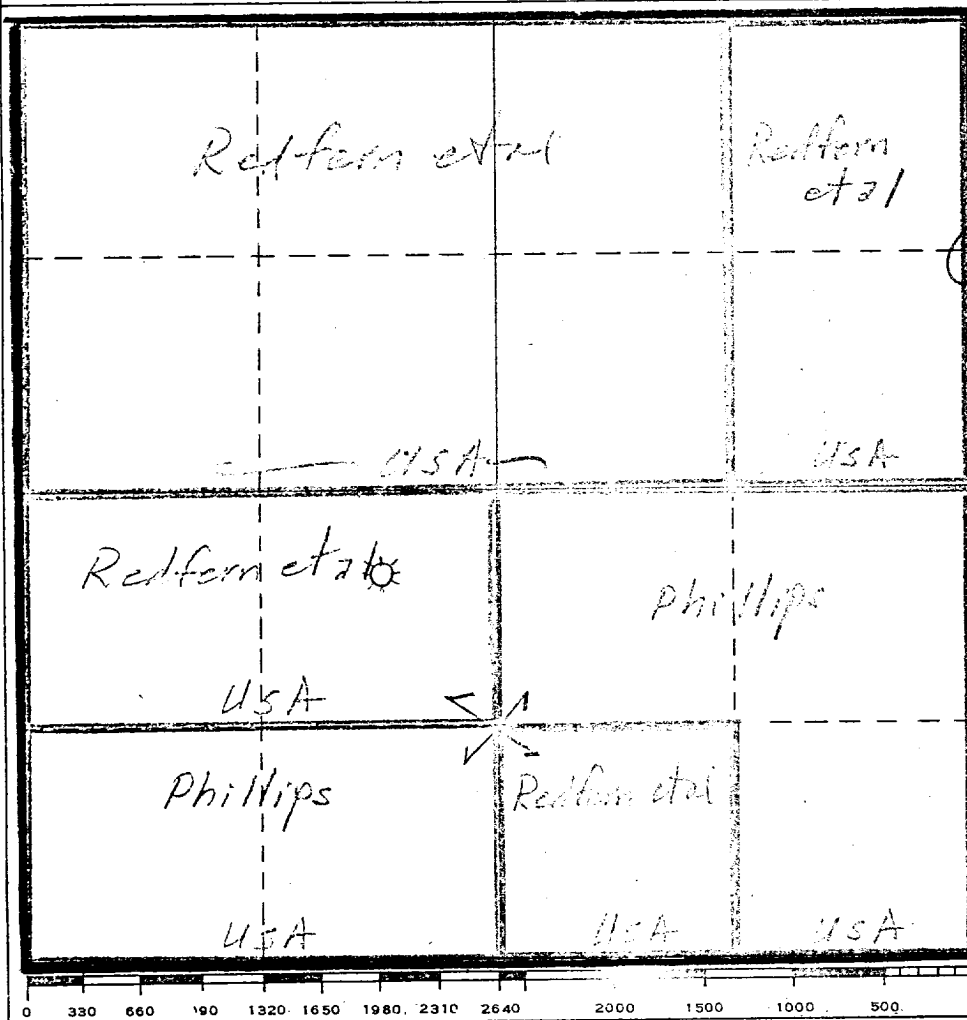 Redfern etal
Redfern
etal
USA
USA
Redfern etal
Phillips
USA
Phillips
Redfern etal
USA
USA
USA
0 330 660 '90 1320 1650 1980. 2310 2640 2000 1500 1000 500.